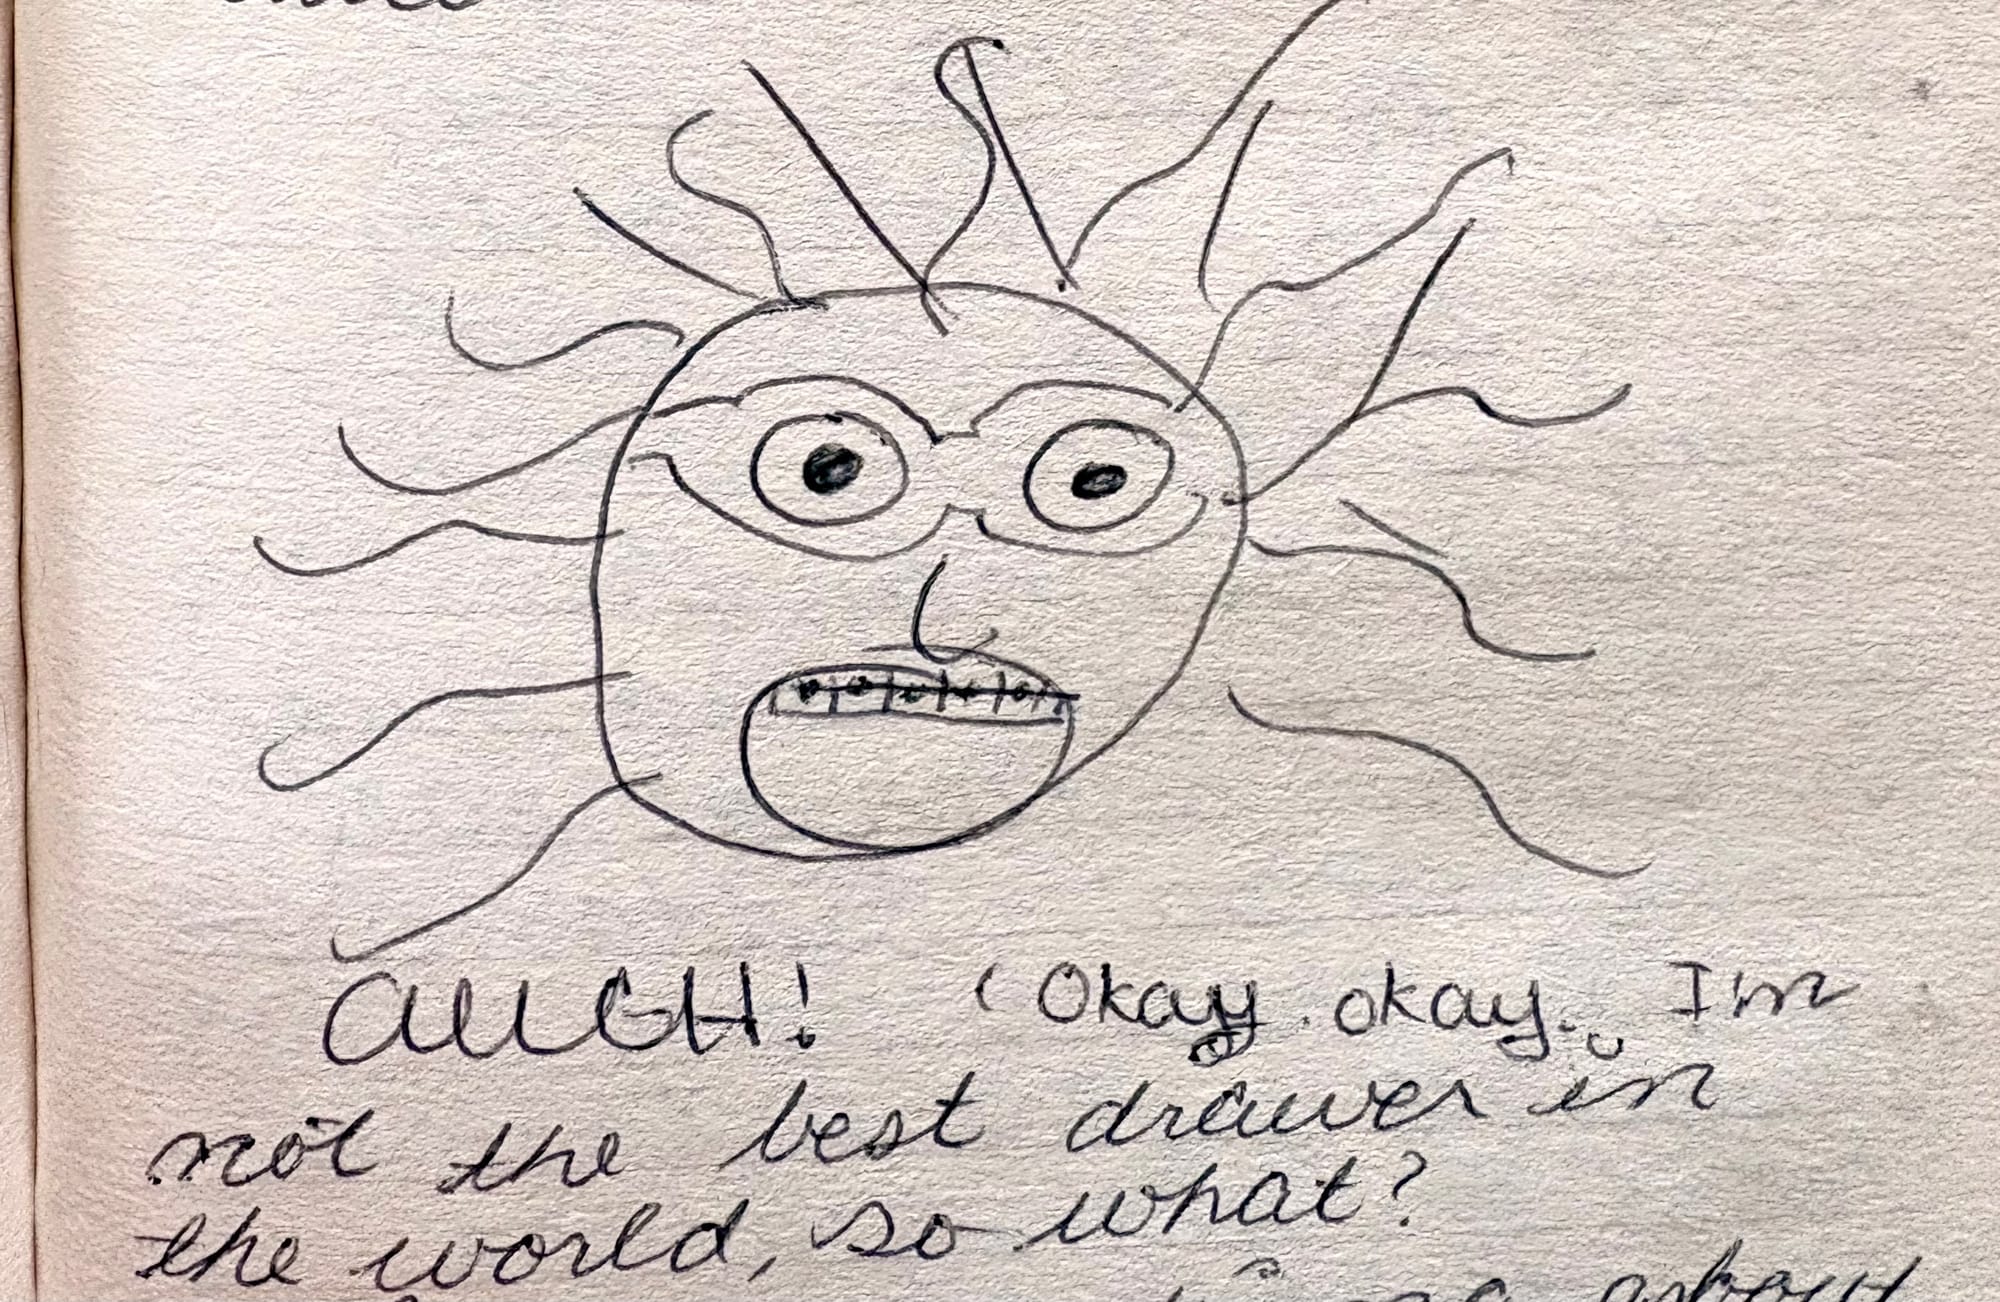 AUGH! (Okay okay. I'm
not the best drawer in
the world, so what?
about